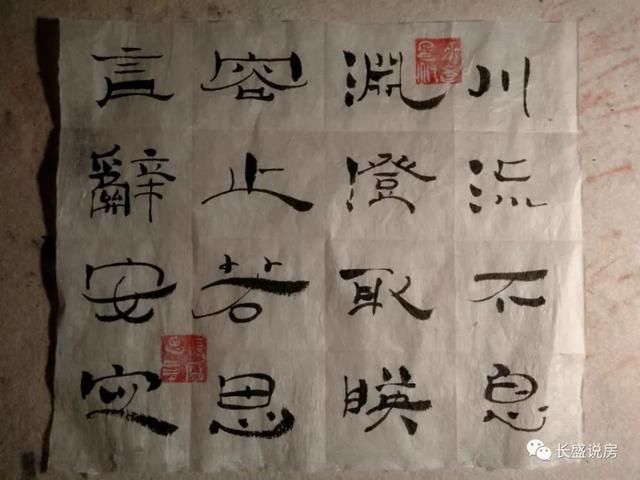 川流不息
淵澄取暎
容止若思
言辭安定
长盛说房